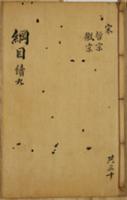 宋
哲宗
徽宗
綱目續九
共三十